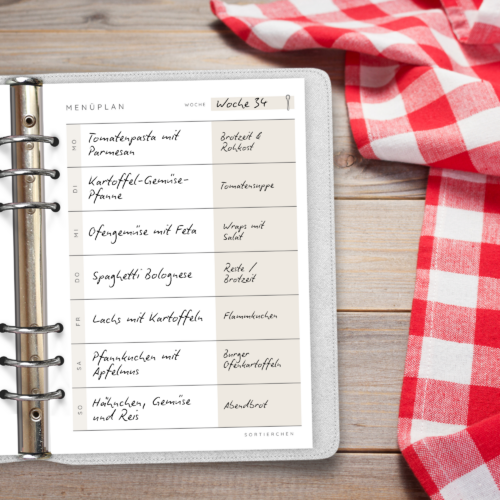 MENÜPLAN
WOCHE Woche 34
MO Tomatenpasta mit Brotzeit &
Parmesan Rohkost
DI Kartoffel-Gemüse- Tomatensuppe
Pfanne
MI Ofengemüse mit Feta Wraps mit
Salat
DO Spaghetti Bolognese Reste /
Brotzeit
FR Lachs mit Kartoffeln Flammkuchen
SA Pfannkuchen mit Burger
Apfelmus Ofenkartoffeln
SO Hähnchen, Gemüse Abendbrot
und Reis
SORTIERCHEN